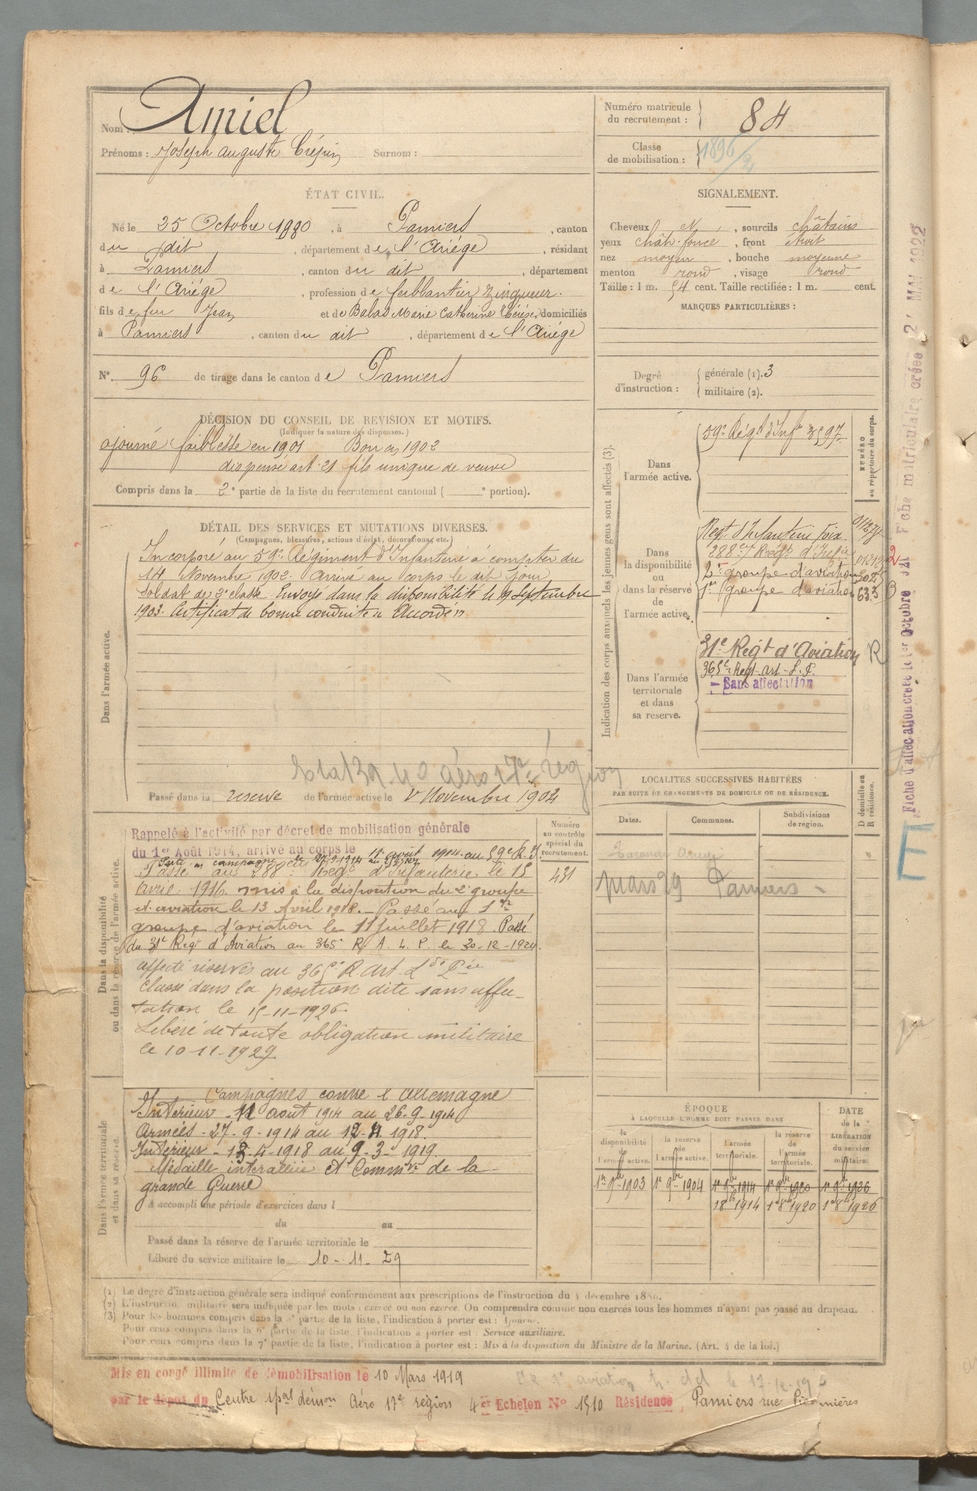 Nom : Amiel
Prénoms : Joseph Auguste Crépin Surnom :
Numéro matricule du recrutement : 84
Classe de mobilisation : 1896
ÉTAT CIVIL.
Né le 25 Octobre 1880, à Pamiers, canton
du dit, département de l'Ariége, résidant
à Pamiers, canton du dit, département
de l'Ariége, profession de ferblantier zingueur.
fils de feu Jean et de Balas Marie Catherine Thérèse, domiciliés
à Pamiers, canton du dit, département de l'Ariége
N° 96 de tirage dans le canton de Pamiers
SIGNALEMENT.
Cheveux et, sourcils châtains
yeux chât. foncé, front étroit
nez moyen, bouche moyenne
menton rond, visage rond
Taille : 1 m. 54 cent. Taille rectifiée : 1 m. cent.
MARQUES PARTICULIÈRES :
Degré d'instruction : générale (1). 3
militaire (2).
DÉCISION DU CONSEIL DE REVISION ET MOTIFS.
(Indiquer la nature des dispenses.)
ajourné faiblesse en 1901 Bon en 1902
dispensé art. 21 fils unique de veuve
Compris dans la 2e partie de la liste du recrutement cantonal ( e portion).
DÉTAIL DES SERVICES ET MUTATIONS DIVERSES.
(Campagnes, blessures, actions d'éclat, décorations, etc.)
Dans l'armée active.
Incorporé au 59e Régiment d'Infanterie à compter du
14 Novembre 1902. Arrivé au corps le dit jour
soldat de 2e classe. Envoyé dans la disponibilité le 19 septembre
1903. Certificat de bonne conduite "Accordé".
17e région
Passé dans la réserve de l'armée active le 1er Novembre 1904
Indication des corps auxquels les jeunes gens sont affectés (3).
NUMÉRO au répertoire du corps.
Dans l'armée active.
59e Régt d'Infie 3597
Dans la disponibilité ou dans la réserve de l'armée active.
Regt d'Infanterie Foix
288e Régt d'Infie
2e groupe d'aviation
1er groupe d'aviation 633
Dans l'armée territoriale et dans sa réserve.
31e Regt d'Aviation R
365e Regt art. L. P.
- Sans affectation
LOCALITES SUCCESSIVES HABITÉES
PAR SUITE DE CHANGEMENTS DE DOMICILE OU DE RÉSIDENCE.
Dates. Communes. Subdivisions de région. D domicile ou R résidence.
mars 29 Pamiers
Dans la disponibilité ou dans la réserve de l'armée active.
Numéro au contrôle spécial du recrutement.
431
Rappelé à l'activité par décret de mobilisation générale
du 1er Août 1914, arrivé au corps le 12 août 1914 au 59e R.I.
Passé au 288e Régt d'Infanterie, le 15
Avril 1916. mis à la disposition du 2e groupe
d'aviation le 13 Avril 1918. - Passé au 1er
groupe d'aviation le 11 juillet 1918. Passé
du 31e Regt d'Aviation au 365e R. A. L. P. le 30-12-1920.
affecté réserves au 365e R Art Lde Pée
Classé dans la position dite sans affec-
tation le 15-11-1926
Libéré de toute obligation militaire
le 10-11-1929
Dans l'armée territoriale et dans sa réserve.
Campagnes contre l'Allemagne
Intérieur - 12 août 1914 au 26.9.1914
Armées - 27-9-1914 au 12-4-1918.
Intérieur - 13-4-1918 au 9-3-1919
Médaille interalliée et Commve de la
grande Guerre
A accompli une période d'exercices dans l
du au
Passé dans la réserve de l'armée territoriale le
Libéré du service militaire le 10-11-29
ÉPOQUE
À LAQUELLE L'HOMME DOIT PASSER DANS
DATE de la LIBÉRATION du service militaire.
la disponibilité de l'armée active. la réserve de l'armée active. l'armée territoriale. la réserve de l'armée territoriale.
1er 9bre 1903 1er 9bre 1904 1er 9bre 1914 1er 9bre 1920 1er 9bre 1926
1er 8bre 1914 1er 8bre 1920 1er 8bre 1926
(1) Le degré d'instruction générale sera indiqué conformément aux prescriptions de l'instruction du 4 décembre 1889.
(2) L'instruction militaire sera indiquée par les mots : exercé ou non exercé. On comprendra comme non exercés tous les hommes n'ayant pas passé au drapeau.
(3) Pour les hommes compris dans la 4e partie de la liste, l'indication à porter est : Ajourné.
Pour ceux compris dans la 6e partie de la liste, l'indication à porter est : Service auxiliaire.
Pour ceux compris dans la 7e partie de la liste, l'indication à porter est : Mis à la disposition du Ministre de la Marine. (Art. 4 de la loi.)
Mis en congé illimité de démobilisation le 10 Mars 1919
par le dépôt du Centre spal démon Aéro 17e région 4e Echelon N° 1510 Résidence Pamiers rue Piconnières
Fiche d'affectation créée le 1er Octobre 1921 Fiche matriculaire créée MAI 1922